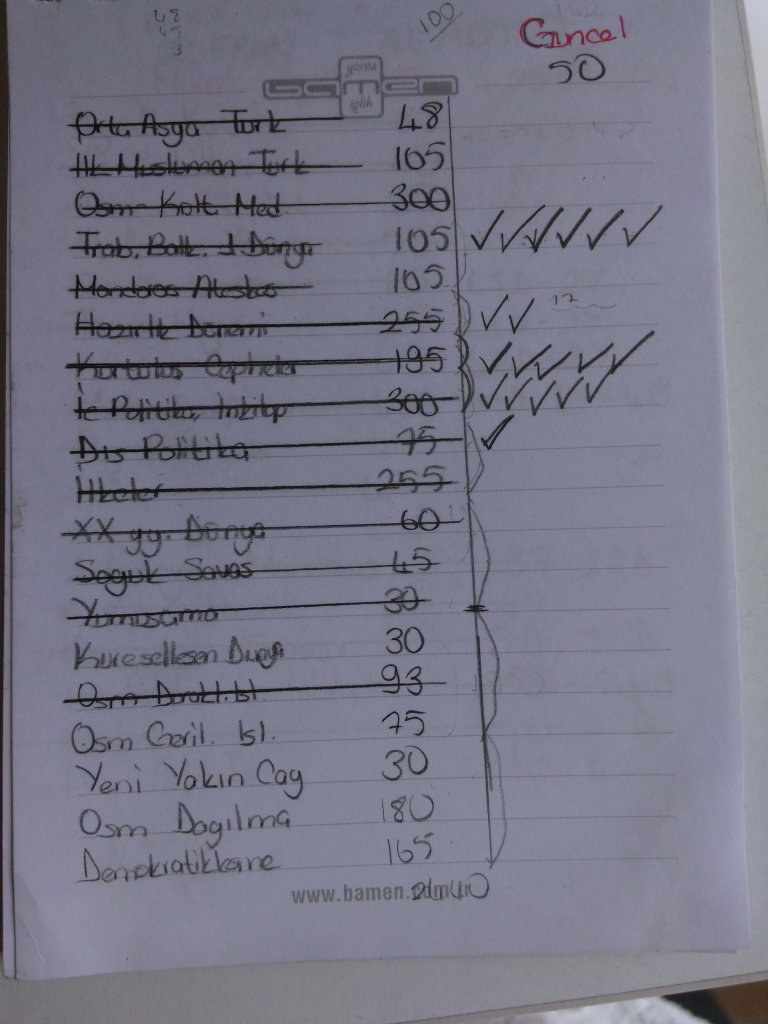 48
100
Güncel
50
yarns
bamen
iplik
Orta Asya Türk 48
İlk Müslüman Türk 105
Osm Kült Med 300
Trab. Balk. 1 Dünya 105
Mondoros Ateskes 105
Hazırlık Dönemi 255
17
Kurtulus Cepheler 195
İc Politika, İnkilap 300
Dıs Politika 75
İlkeler 255
XX yy. Dünya 60
Soguk Savas 45
Yumusama 30
Küresellesen Dunya 30
Osm Durakl. Isl. 93
Osm Geril. Isl. 75
Yeni Yakın Cag 30
Osm Dagılma 180
Demokratiklesme 165
www.bamen.com.tr